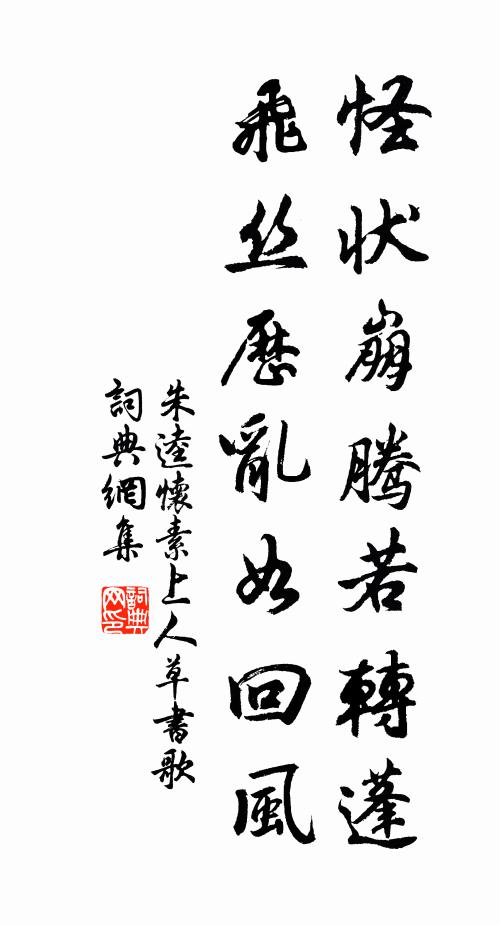 怪狀崩騰若轉蓬
飛丝歷亂如回風
朱逵懷素上人草書歌
詞典網集
詞典网印